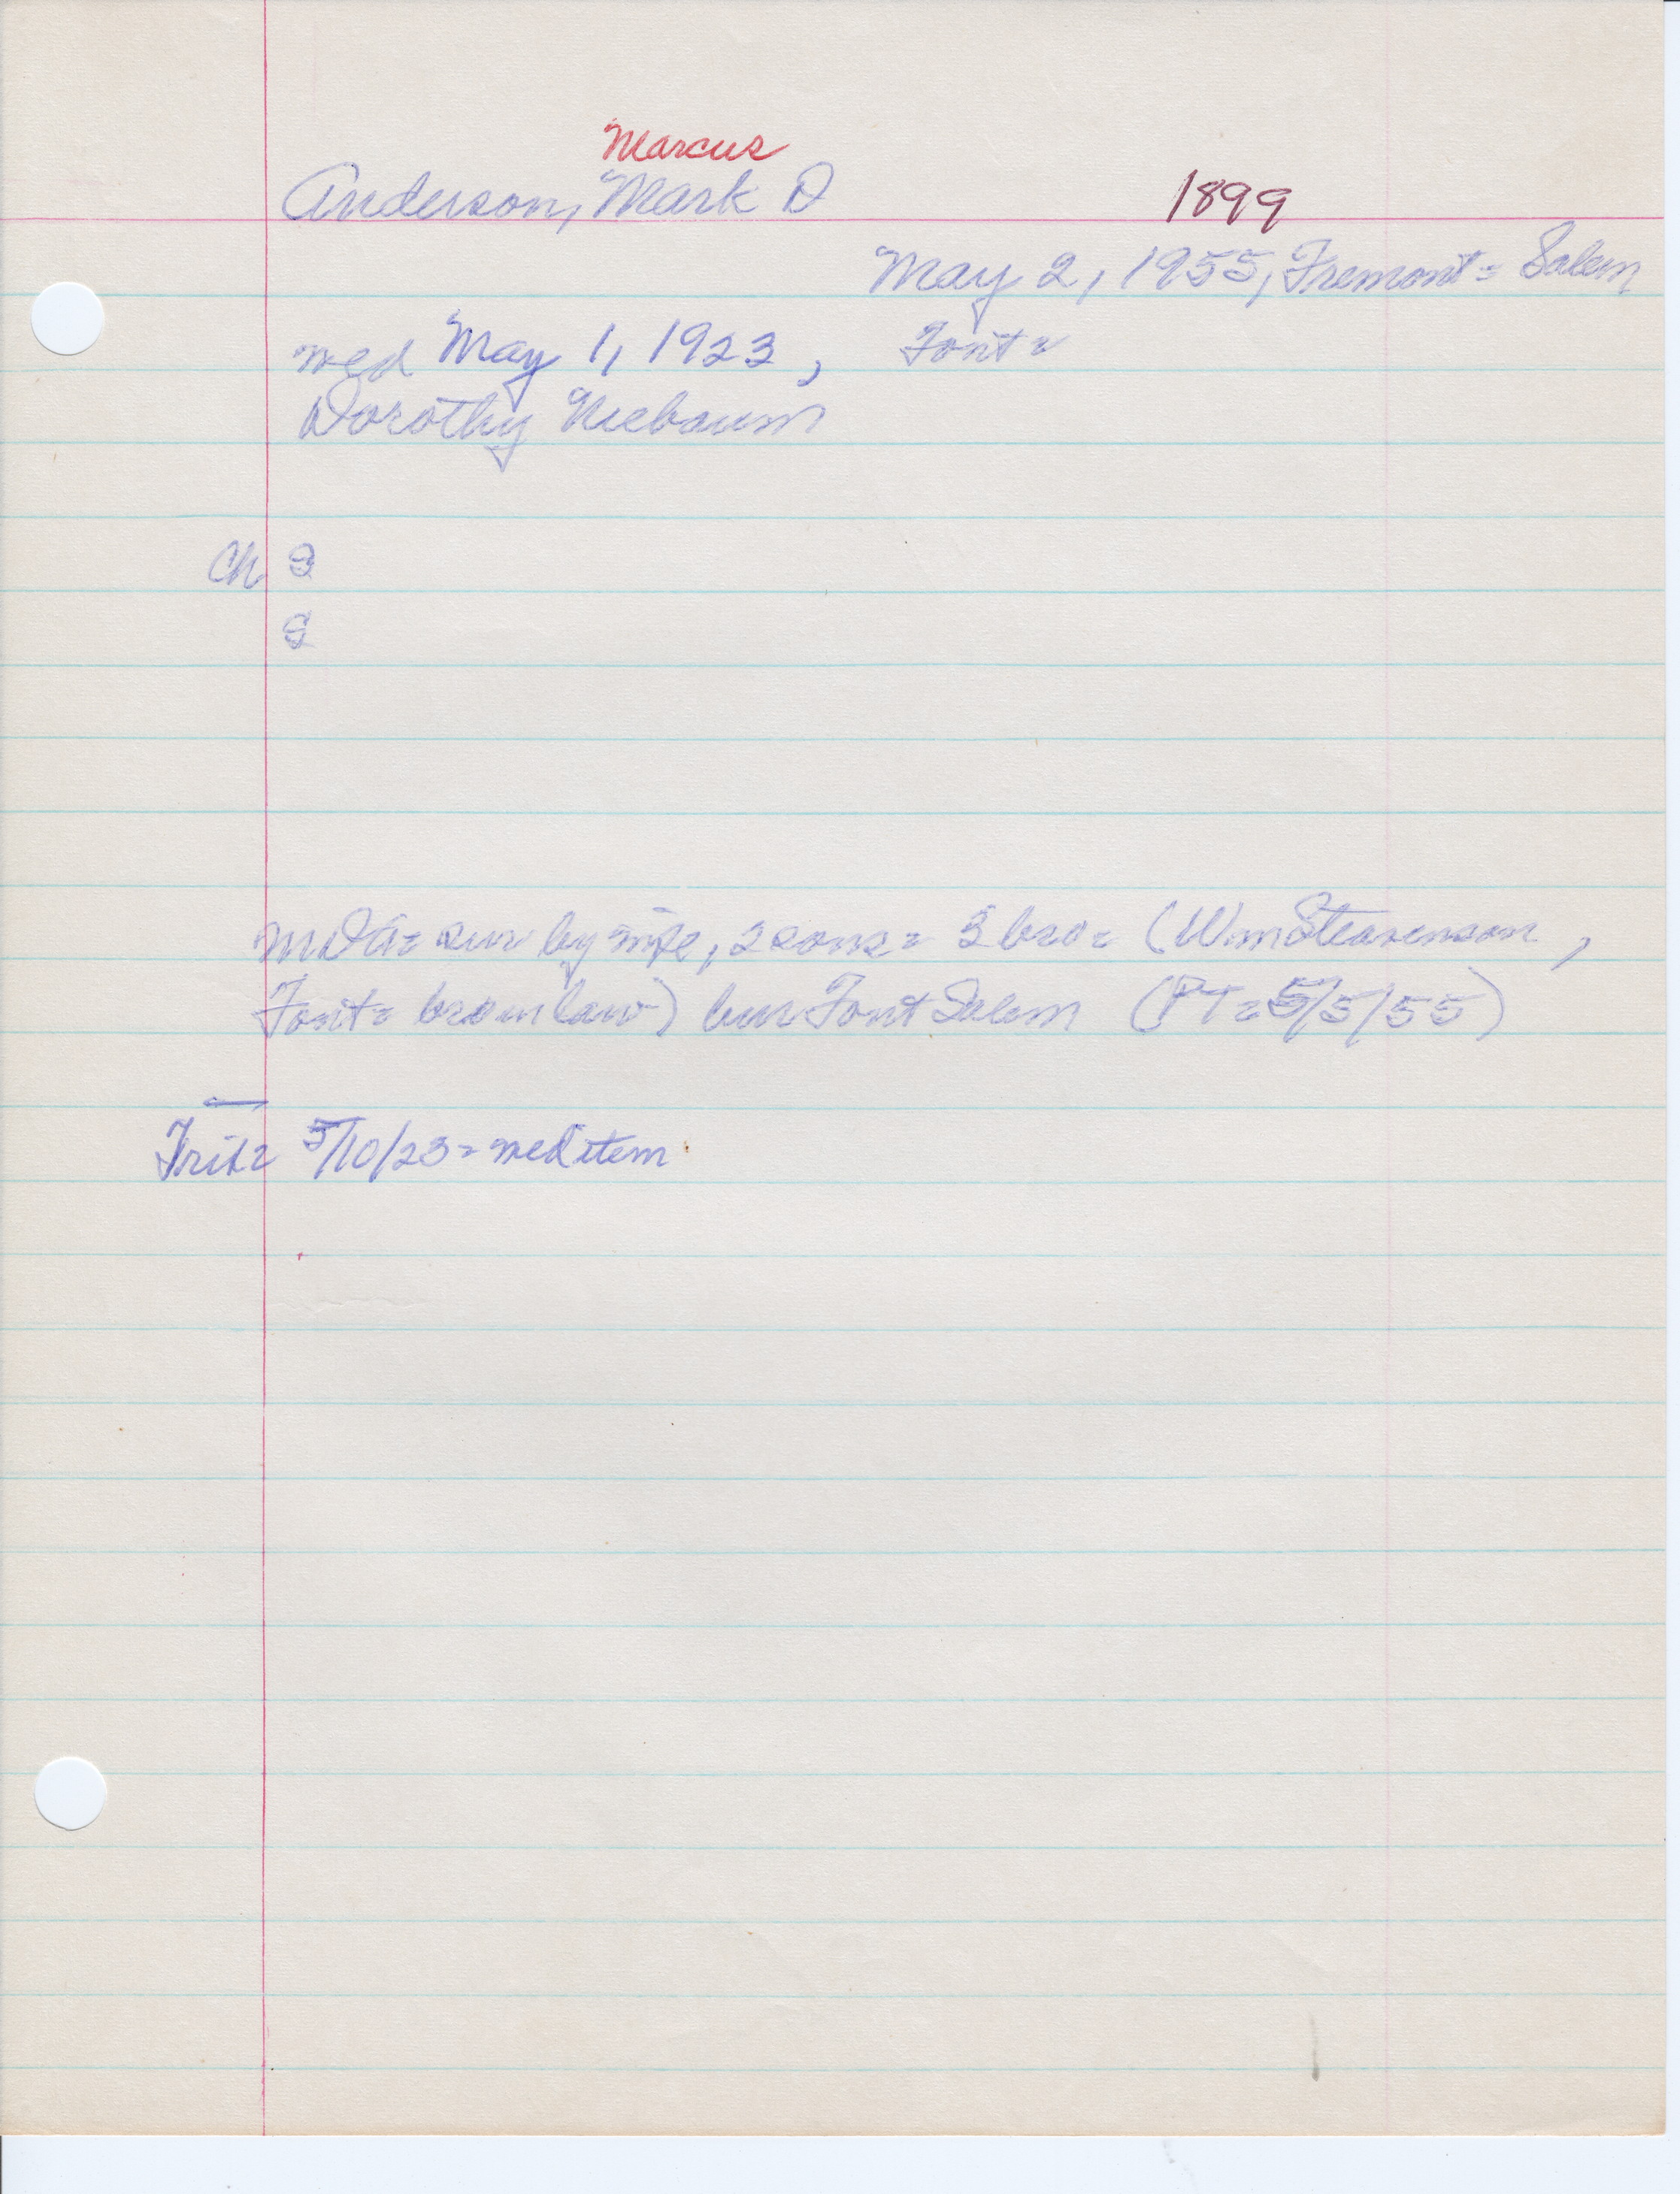 Marcus
Anderson, Mark D 1899
May 2, 1955, Fremont = Salem
wed May 1, 1923, Font =
Dorothy Niebaum
Ch S
S
MDA = sur by wife, 2 sons = 3 bro = (Wm Stearenson,
Font = bro in law) bur Font Salem (PT = 5/5/55)
Trib = 5/10/23 = wed item